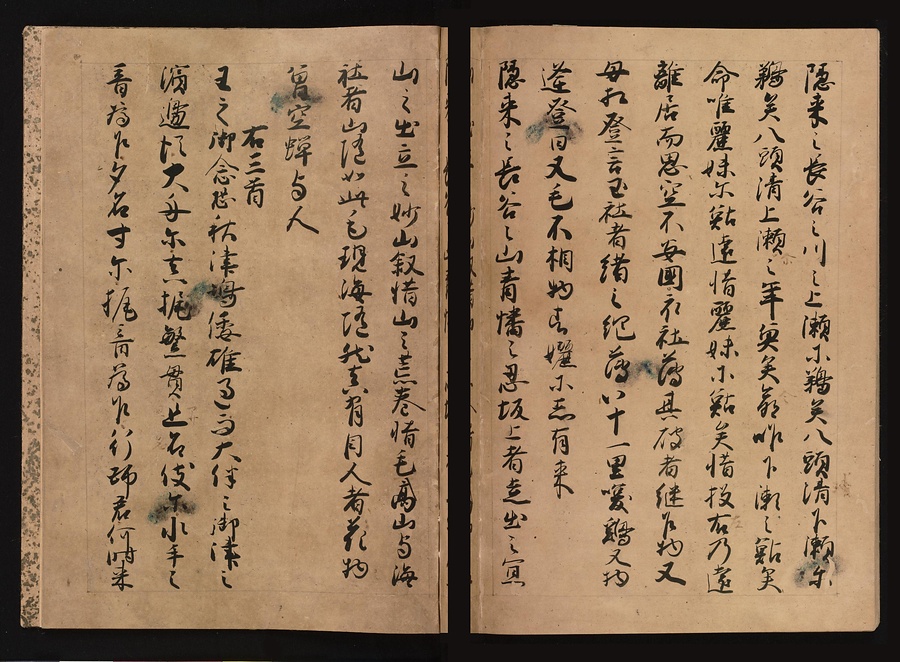 隠来之長谷之川之上瀬尓鵜矣八頭漬下瀬尓
鵜矣八頭漬上瀬之年魚矣令咋下瀬之鮎矣
令唯麗妹尓鮎遠惜麗妹尓鮎矣惜投右乃遠
離居而思空不安國衣社薄其破者継乍物又
母相登言玉社者緒之絶薄八十一里喚鶏又物
逢登曰又毛不相物者嬬尓志有来
隠来之長谷之山青幡之忍坂上者走出之
山之出立之妙山叙惜山之荒巻惜毛高山与海
社者山随如此毛現海随然真有目人者花物
曽空蝉与人
右三首
王之御念恐秋津嶋倭雄過而大伴之御津之
濱邊従大舟尓真梶繁貫旦名伎尓水手之
音為乍夕名寸尓梶音為乍行師君何時来